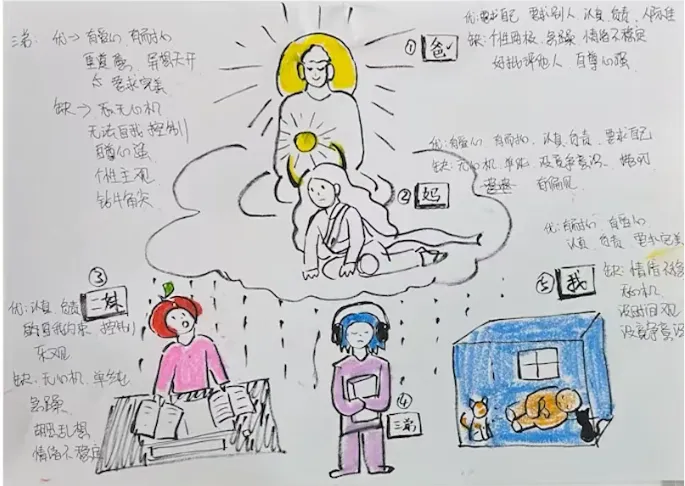 三弟: 优→ 有爱心 有耐心
重感
心 要求完美
缺→ 无心机
无法自我控制
自尊心强
个性主观
钻牛角尖
① 爸
优: 要求自己 要求别人 认真 负责
缺: 个性 急躁 情绪不稳定
好批评他人 自尊心强
② 妈
优: 有爱心 有耐心 认真 负责 要求自己
缺: 无心机 单纯 没竞争意识
有偏见
③ 二妹
优: 认真 负责
自我约束 控制
乐观
缺: 无心机 单纯
急躁
胡思乱想
情绪不稳定
④ 三弟
⑤ 我
优: 有耐心 有爱心
认真 负责 要求完美
缺: 情绪不稳
无心机
没时间观
没竞争意识